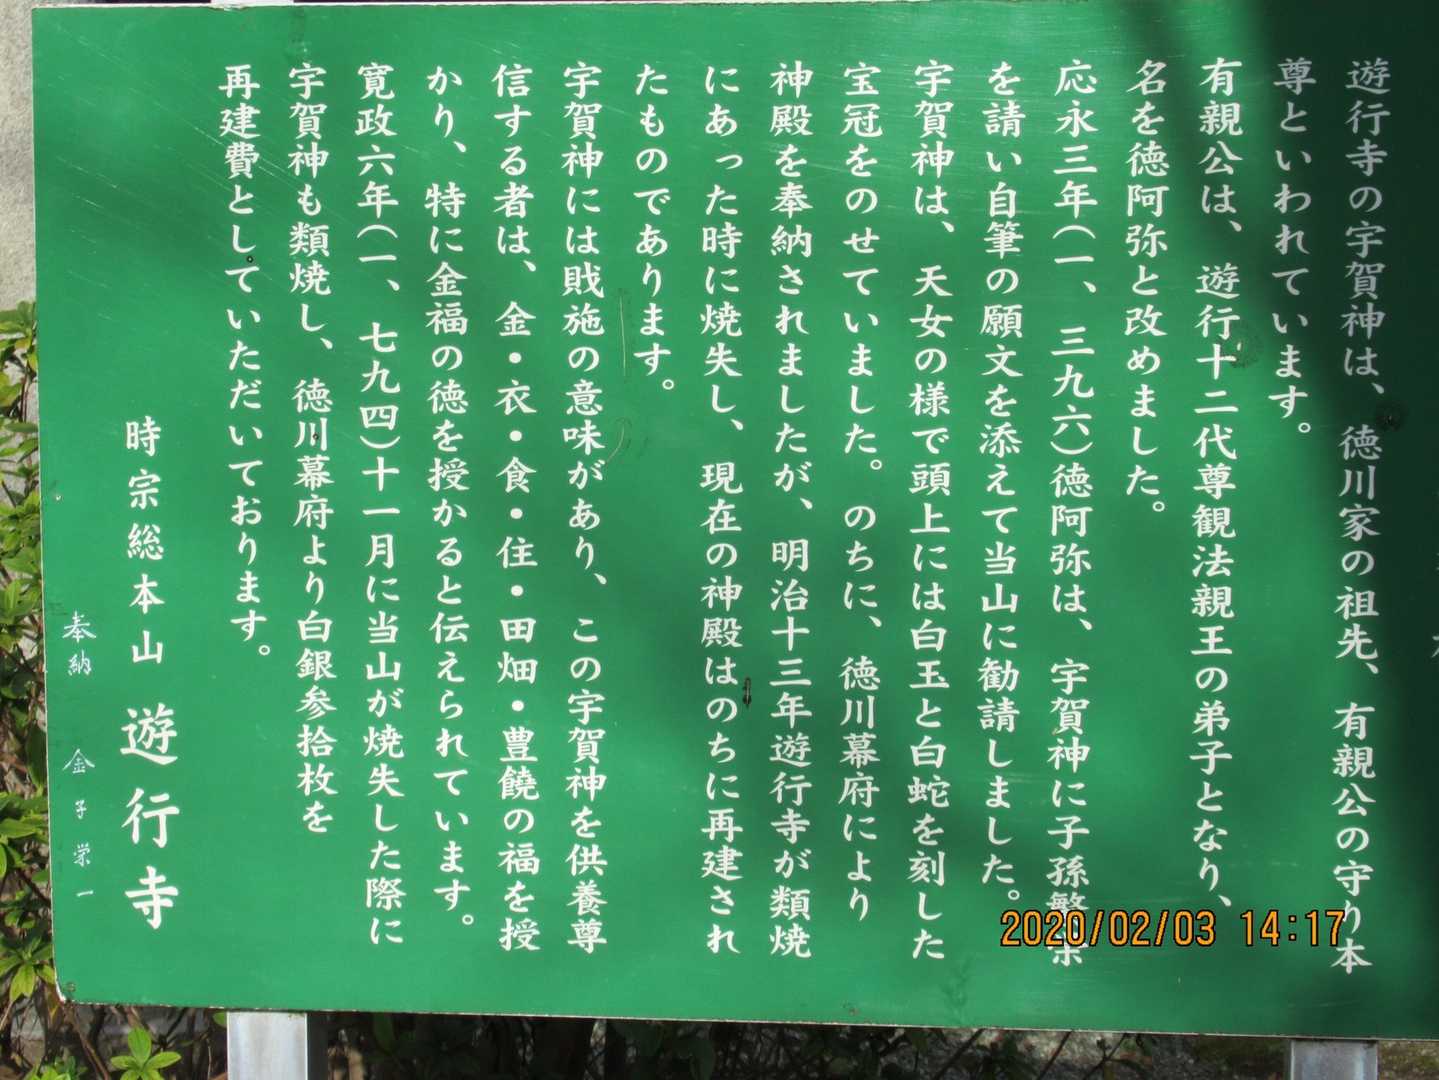 遊行寺の宇賀神は、徳川家の祖先、有親公の守り本
尊といわれています。
有親公は、遊行十二代尊観法親王の弟子となり、
名を徳阿弥と改めました。
応永三年(一、三九六)徳阿弥は、宇賀神に子孫繁栄
を請い自筆の願文を添えて当山に勧請しました。
宇賀神は、天女の様で頭上には白玉と白蛇を刻した
宝冠をのせていました。のちに、徳川幕府により
神殿を奉納されましたが、明治十三年遊行寺が類焼
にあった時に焼失し、現在の神殿はのちに再建され
たものであります。
宇賀神には戝施の意味があり、この宇賀神を供養尊
信する者は、金・衣・食・住・田畑・豊饒の福を授
かり、特に金福の徳を授かると伝えられています。
寛政六年(一、七九四)十一月に当山が焼失した際に
宇賀神も類焼し、徳川幕府より白銀参拾枚を
再建費としていただいております。
時宗総本山 遊行寺
奉納 金子栄一
2020/02/03 14:17